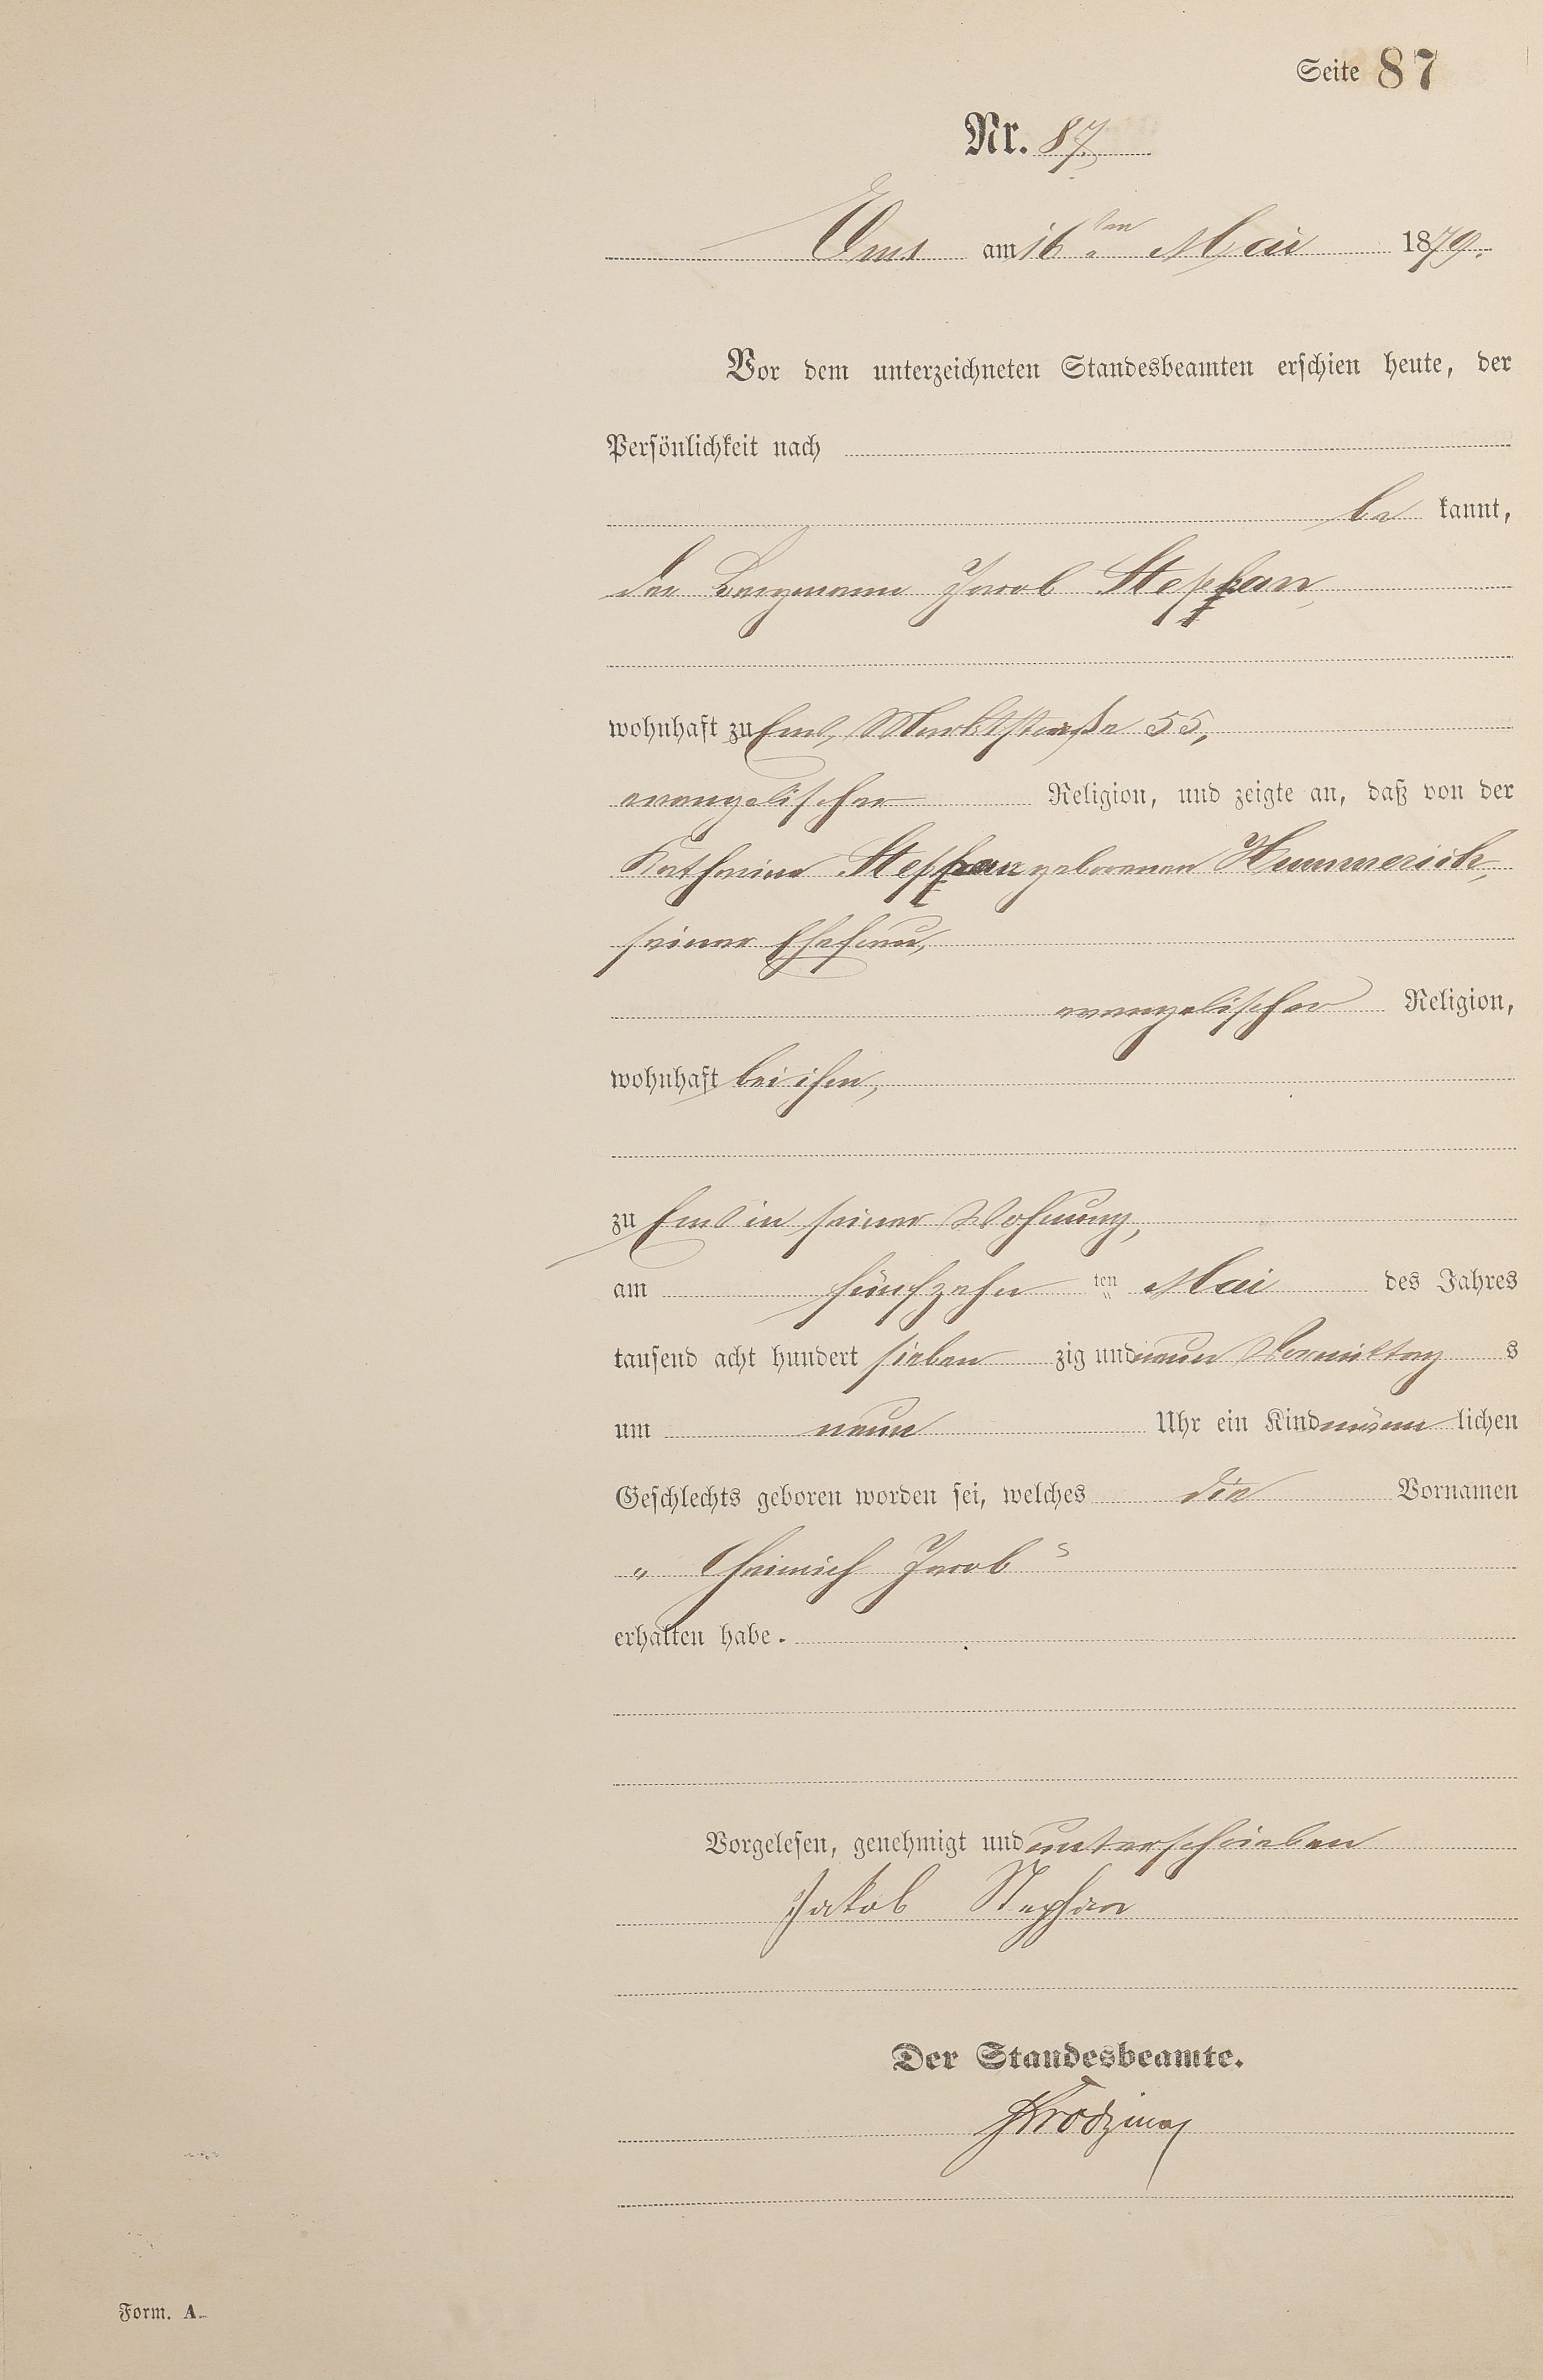 Seite 87
Nr. 87.
Ems am 16ten Mai 1879.
Vor dem unterzeichneten Standesbeamten erschien heute, der
Persönlichkeit nach
be kannt,
der Bergmann Jacob Stephan,
wohnhaft zu Ems, Marktstraße 55,
evangelischer Religion, und zeigte an, daß von der
Katharina Stephan geborenen Hummerich,
seiner Ehefrau,
evangelischer Religion,
wohnhaft bei ihm,
zu Ems in seiner Wohnung,
am fünfzehn ten Mai des Jahres
tausend acht hundert sieben zig und neun Vormittag s
um neun Uhr ein Kind männ lichen
Geschlechts geboren worden sei, welches die Vornamen
„ Heinrich Jacob “
erhalten habe.
Vorgelesen, genehmigt und unterschrieben
Jakob Stephan
Der Standesbeamte.
Form. A.